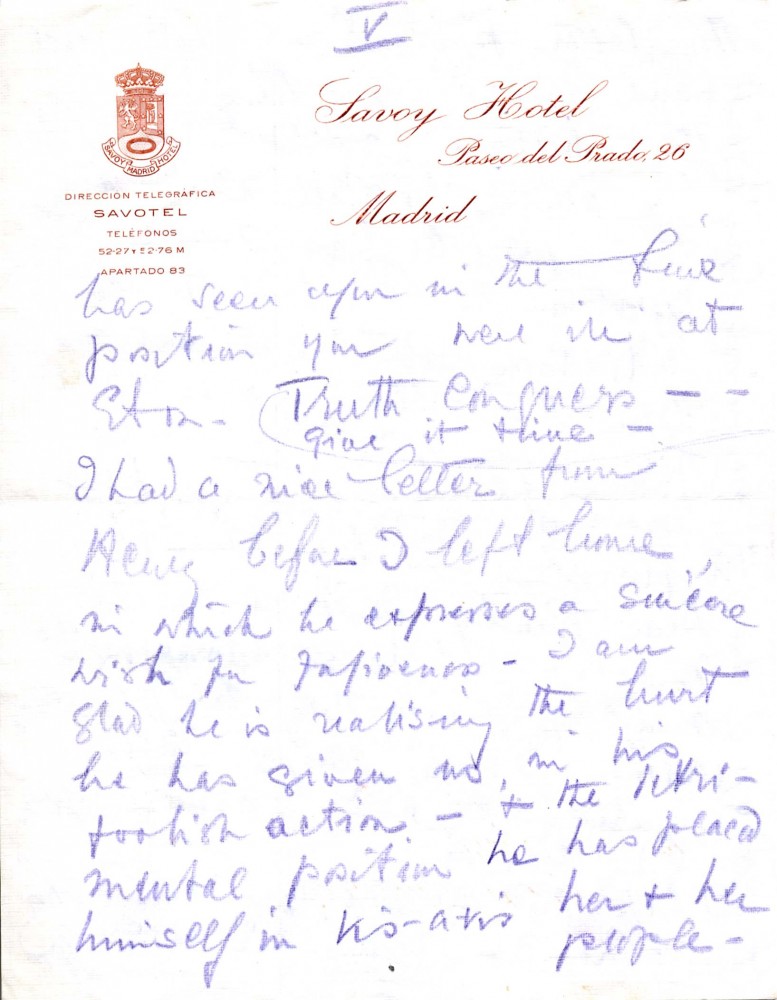 V
SAVOY MADRID HOTEL
DIRECCIÓN TELEGRÁFICA
SAVOTEL
TELÉFONOS
52-27 Y 52-76 M
APARTADO 83
Savoy Hotel
Paseo del Prado, 26
Madrid
has seen you in the fine
position you were in at
Eton - Truth Conquers - - -
give it time -
I had a nice letter from
Henry before I left home,
in which he expresses a sincere
wish for forgiveness - I am
glad he is realising the hurt
he has given us, in his
foolish action. - & the detri-
mental position he has placed
himself in vis-a-vis her & her
people -